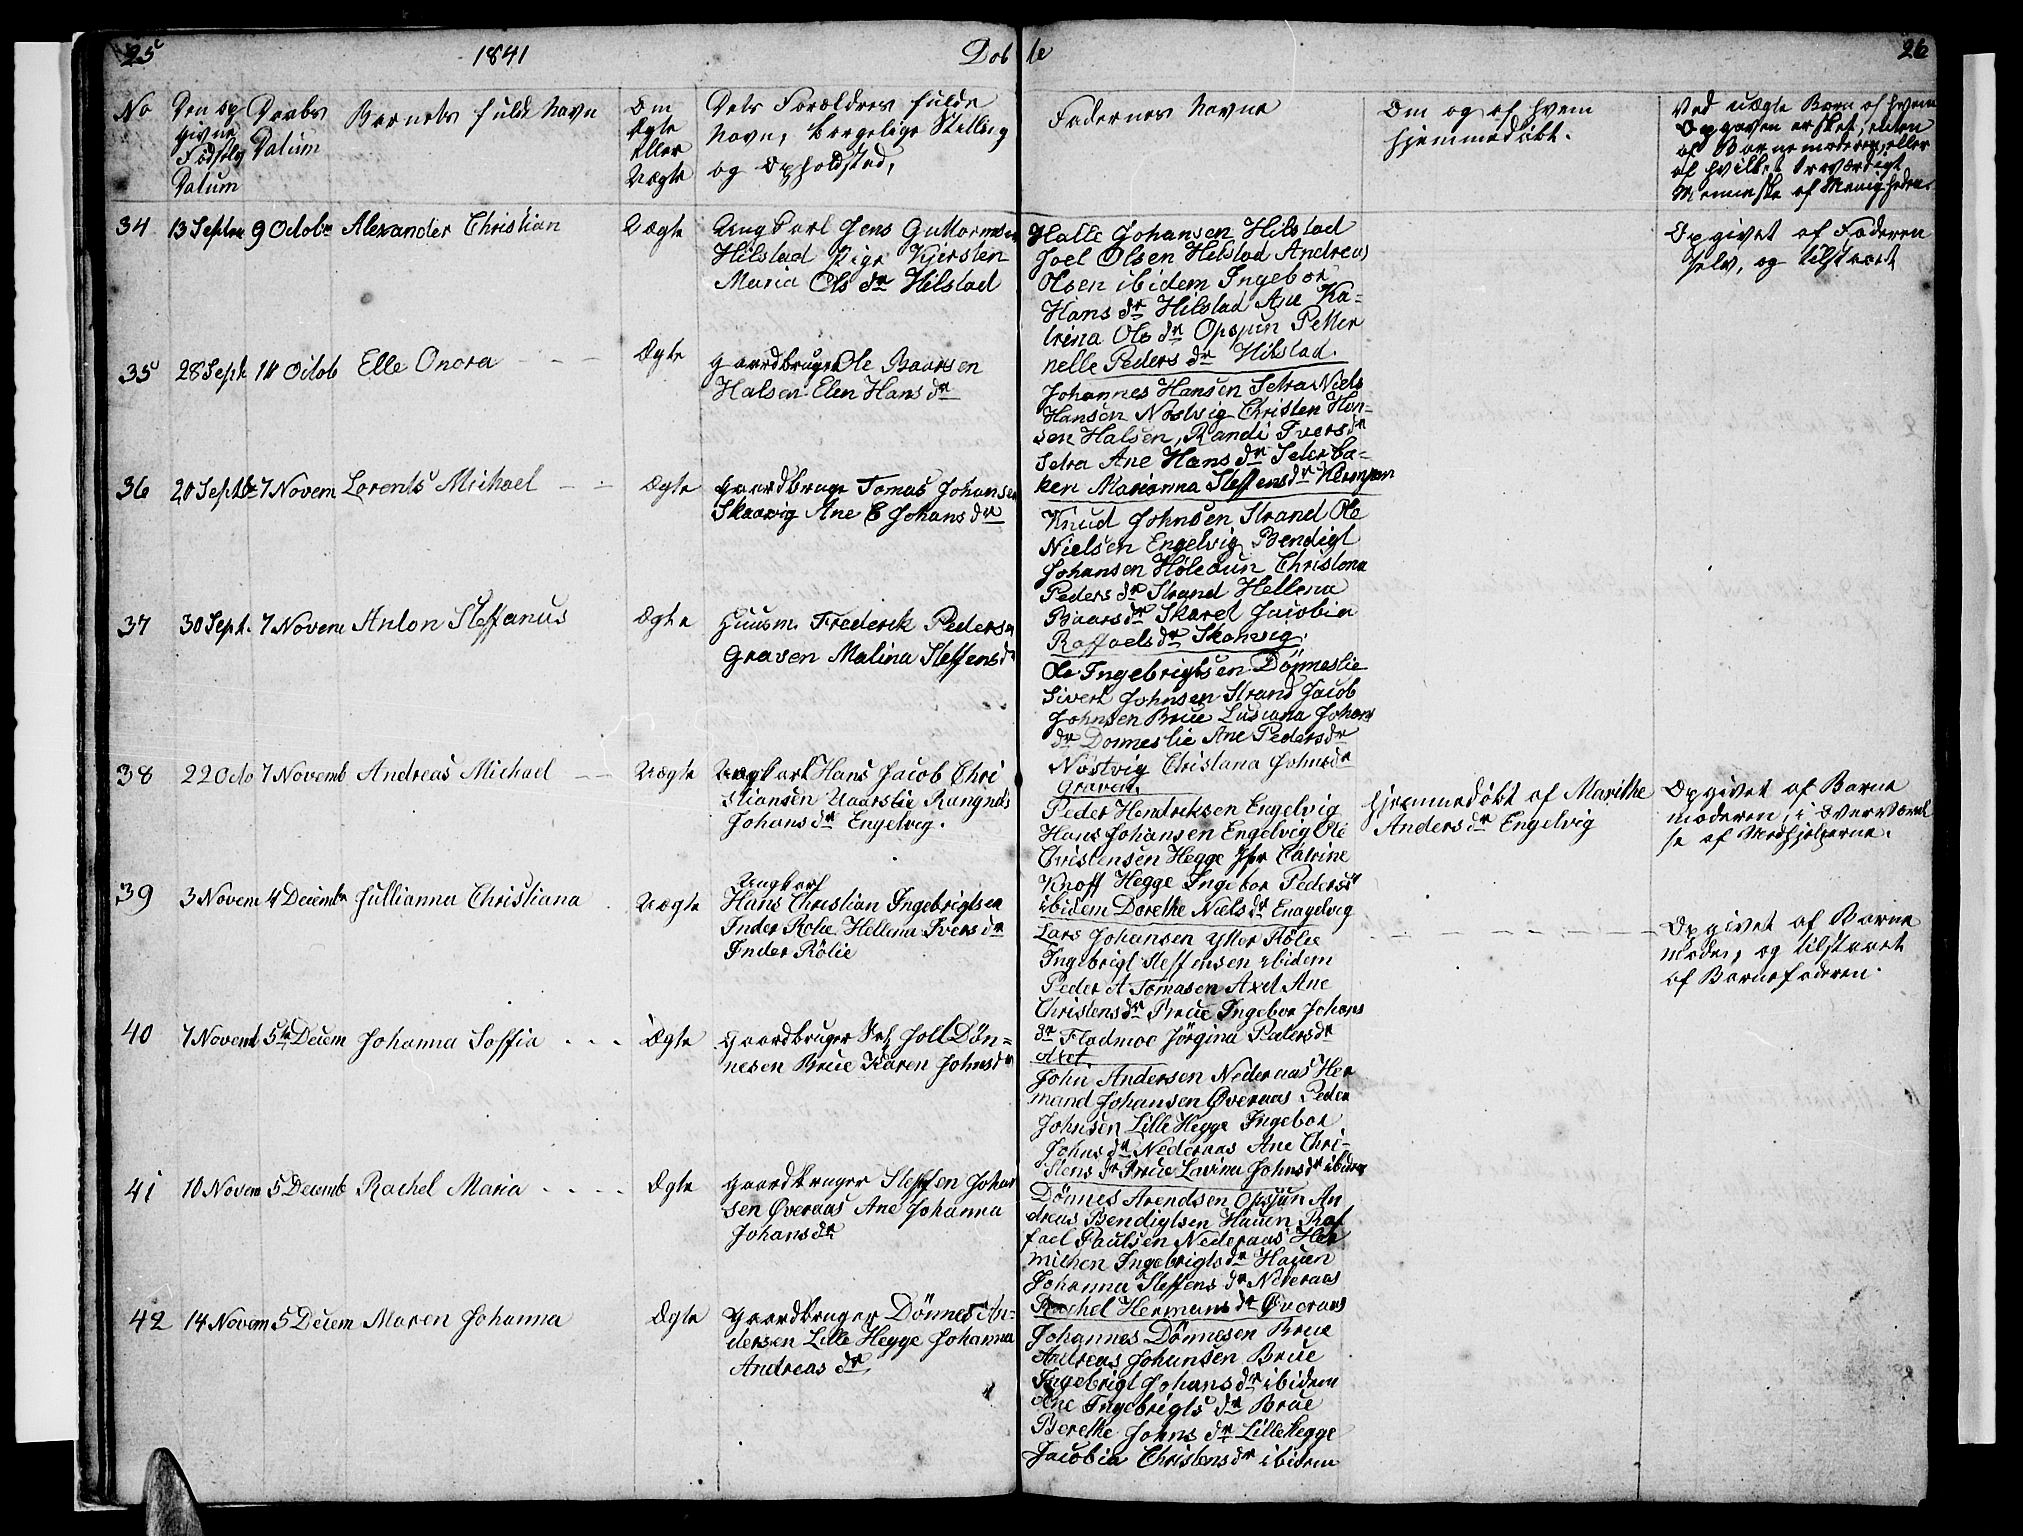 25 1841 Døb te 26
No Den op givne Fødsels Datum Daabs Datum Barnets fulde Navn Om Ægte Eller Uægte Dets Forældres fulde Navn, borgelige Stilling og Opholdsted, Fadernes Navne Om og af hvem hjemmedøbt. Ved uægte Barn af hvem Opgaven er sket, enten af Barnemoderen, eller af hvilket troværdigt Menneske af Menigheden.
34 13 Septem 9 Octobr Alexander Christian Uægte Ungkarl Jens Guttormsen
Hilstad Pige Kjersten
Maria Ols dr Hilstad
Halle Johansen Hilstad
Joel Olsen Hilstad Andreas
Olsen ibidem Ingebor
Hans dr Hilstad Ane Ka-
trina Ols dr Opsjun Petter
nelle Peders dr Hilstad.
Opgivet af Faderen
selv, og tilstaaet
35 28 Sept 14 Octob Elle Onora Ægte gaardbruger Ole Baarsen
Halsen Elen Hans dr
Johannes Hansen Setra Niels
Hansen Nostvig Christen Han-
sen Halsen, Randi Ivers dr
Setra Ane Hans dr Seterba-
ken Marianna Steffens dr
36 20 Septb 7 Novem Lorents Michael Ægte Gaardbruge Tomas Johansen
Skaavig Ane E Johans dr
Knud Johnsen Strand Ole
Nielsen Engelvig Bendigt
Johansen Christona
Peders dr Strand Hellena
Baars dr Skaret Jacobia
Raffaels dr Skavig.
37 30 Sept. 7 Novem Anton Steffanus Ægte Huusm. Frederik Pedersen
Graven Malina Steffens dr
Ole Ingebrigtsen Dønneslie
Sivert Johnsen Strand Jacob
Johnsen Brue Lusiana Johans
dr Donneslie Ane Peders dr
Nostvig Christiana Johns dr
Graven.
38 22 Octo 7 Novemb Andreas Michael Uægte Ungkarl Hans Jacob Chri
stiansen Uaarslie Rangnils
Johans dr Engelvig.
Peder Hendriksen Engelvig
Hans Johansen Engelvig Ole
Christensen Hegge Jfr Catrine
Knoff Hegge Ingebor Peders dr
ibidem Dorethe Niels dr Enagelvig
Hjemmedøbt af Marithe
Anders dr Engelvig
Opgivet af Barne
moderen, i Overværel
se af Medhjelperne.
39 3 Novem 4 Decembr Jullianna Christiana Uægte Ungkarl
Hans Christian Ingebrigtsen
Inder Rolie Hellena Ivers dr
Inder Rölie
Lars Johansen Ytter Rölie
Ingebrigt Steffensen ibidem
Peder A Tomasen Axet Ane
Christens dr Brue Ingebor Johans
dr Fladmoe Jørgina Peders dr
Axet.
Opgivet af Barne
moder, og tilstaaet
af Barnefaderen.
40 7 Novemb 5te Decem Johanna Soffia Ægte gaardbruger Joll Døn-
nesen Brue Karen Johns dr
John Andersen Nederaas Her
mand Johansen Øveraas Peder
Johnsen Lille Hegge Ingebor
Johns dr Nederaas Ane Chri-
stens dr Brue Lavina Johns dr ibidem
41 10 Novem 5 Decemb Rachel Maria Ægte gaardbruger Steffen Johan
sen Øveraas Ane Johanna
Johans dr
Dønnes Arendsen Opsjun An
dreas Bendigtsen Hauen Raf
fael Paulsen Nederaas Her
michen Ingebrigts dr Hauen
Johanna Steffens dr Nederaas
Rachel Hermans dr Øveraas
42 14 Novem 5 Decem Maren Johanna Ægte gaardbruger Dønnes An-
dersen Lille Hegge Johanna
Andreas dr
Johannes Dønnesen Brue
Andreas Johansen Brue
Ingebrigt Johans dr ibidem
Ane Ingebrigts dr Brue
Berethe Johns dr Lillehegge
Jacobia Christens dr ibidem